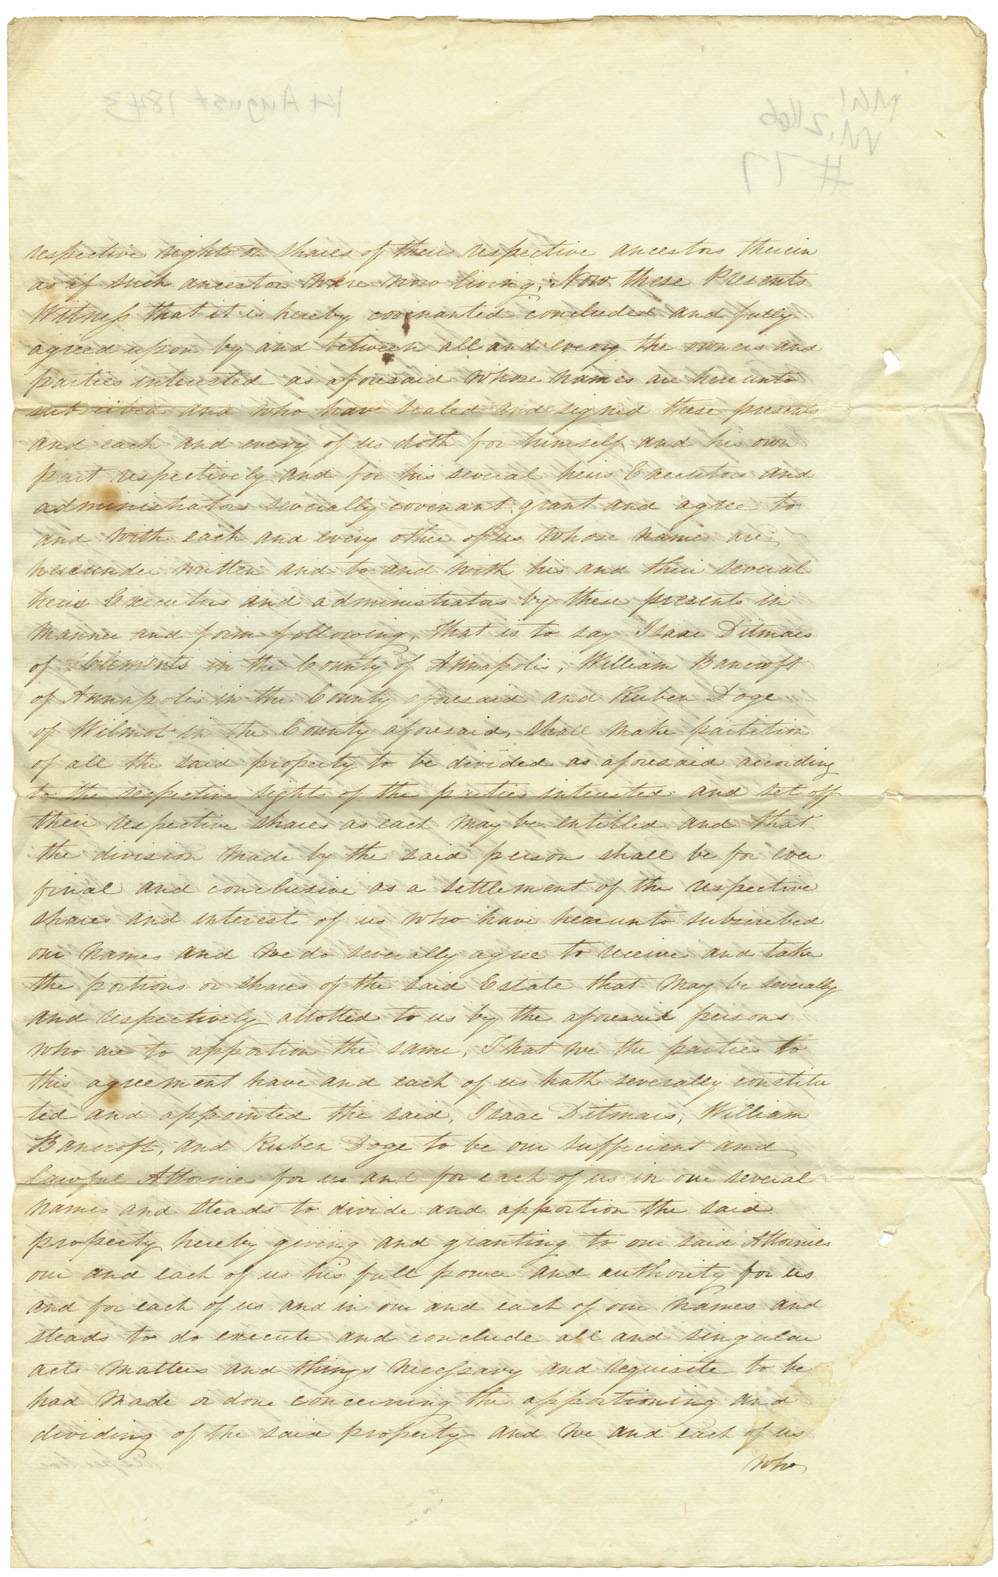 1st August 1843
MG1
Vol. 2166
#17
respective rights or shares of their respective ancestors therein
as if such ancestor were now living; Now these Presents
Witness that it is hereby covenanted concluded and fully
agreed upon by and between all and every the owners and
parties interested as aforesaid whose names are hereunto
subscribed and who have sealed and signed these presents
and each and every of us doth for himself and his own
part respectively and for his several heirs Executors and
administrators severally covenant grant and agree to
and with each and every other of us whose names are
hereunder written and to and with his and their several
heirs Executors and administrators by these presents in
manner and form following, that is to say Isaac Ditmars
of Clements in the County of Annapolis, William Bancroft
of Annapolis in the County aforesaid and Ruben Doge
of Wilmot in the County aforesaid, shall make partition
of all the said property to be divided as aforesaid according
to the respective rights of the parties interestes and set off
their respective shares as each may be entitled and that
the division made by the said persons shall be for ever
final and conclusive as a settlement of the respective
shares and interest of us who have hereunto subscribed
our names and we do severally agree to receive and take
the portions or shares of the said Estate that may be severally
and respectively allotted to us by the aforesaid persons
who are to apportion the same, That we the parties to
this agreement have and each of us hath severally constitu
ted and appointed the said, Isaac Ditmars, William
Bancroft, and Ruben Doge to be our sufficient and
lawful Attornies for us and for each of us in our several
names and steads to divide and apportion the said
property hereby giving and granting to our said Attornies
our and each of us his full power and authority for us
and for each of us and in our and each of our names and
steads to do execute and conclude all and singular
acts matters and things necessary and requisite to be
had made or done concerning the apportioning and
dividing of the said property and we and each of us
who